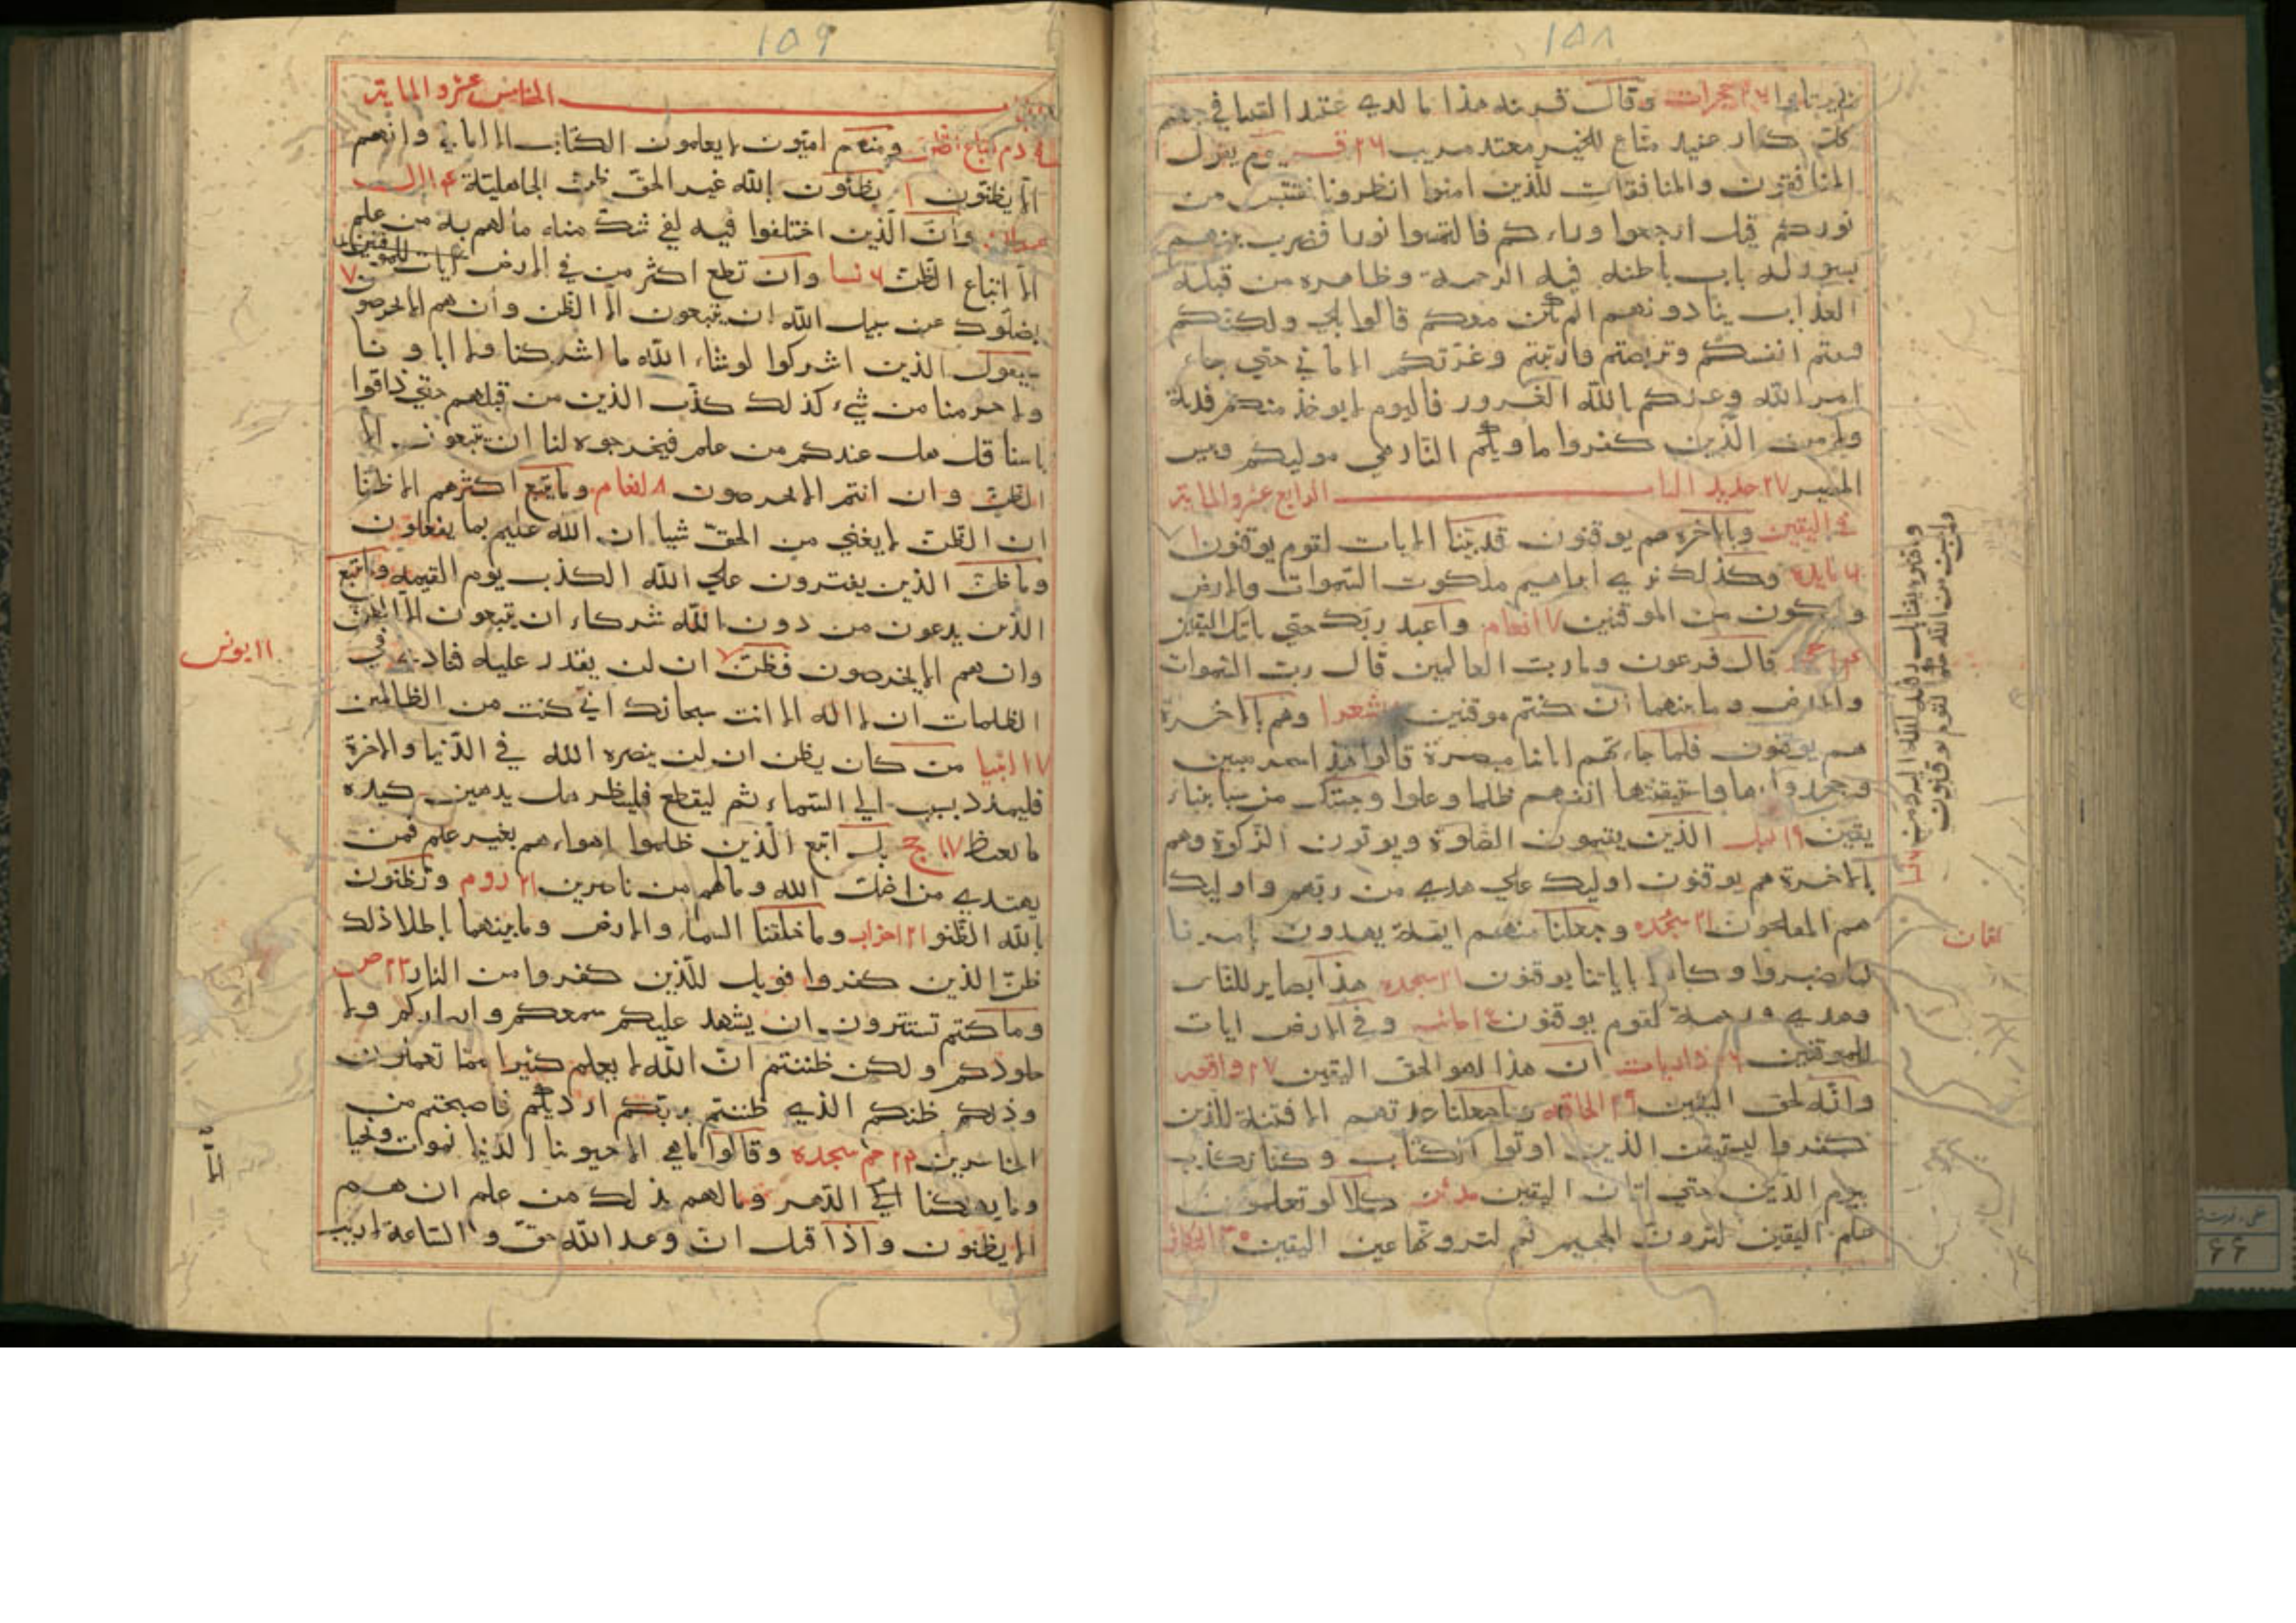 ١٥٨
وقال قرينه هذا ما لدي عتيد القيا في جهنم
كل كفار عنيد مناع للخير معتد مريب ٢٦ ق يوم يقول
المنافقون والمنافقات للذين امنوا انظرونا نقتبس من
نوركم قيل ارجعوا وراءكم فالتمسوا نورا فضرب بينهم
بسور له باب باطنه فيه الرحمة وظاهره من قبله
العذاب ينادونهم الم نكن معكم قالوا بلي ولكنكم
فتنتم انفسكم وتربصتم وارتبتم وغرتكم الاماني حتي جاء
امر الله وغركم بالله الغرور فاليوم لا يوخذ منكم فدية
ولا من الذين كفروا ماويكم النار هي موليكم وبيس
المصير ٢٧ حديد الباب الرابع عشر والماية
في اليقين وبالاخرة هم يوقنون قد بينا الايات لقوم يوقنون ١
وكذلك نري ابراهيم ملكوت السموات والارض
وليكون من الموقنين ٧ انعام واعبد ربك حتي ياتيك اليقين
قال فرعون وما رب العالمين قال رب السموات
والارض وما بينهما ان كنتم موقنين شعرا وهم بالاخرة
هم يوقنون فلما جاءتهم اياتنا مبصرة قالوا هذا سحر مبين
وجحدوا بها واستيقنتها انفسهم ظلما وعلوا وجئتك من سبا بنباء
يقين ١٩ نمل الذين يقيمون الصلوة ويوتون الزكوة وهم
بالاخرة هم يوقنون اوليك علي هدي من ربهم واوليك
هم المفلحون ٢١ سجده وجعلنا منهم ايمة يهدون بامرنا
لما صبروا وكانوا باياتنا يوقنون ٢١ سجده هذا بصاير للناس
وهدي ورحمة لقوم يوقنون وفي الارض ايات
للموقنين ٢٦ ذاريات ان هذا لهو الحق اليقين ٢٧ واقعه
وانه لحق اليقين ٢٩ الحاقه وما جعلنا عدتهم الا فتنة للذين
كفروا ليستيقن الذين اوتوا الكتاب وكنا نكذب
بيوم الدين حتي اتانا اليقين مدثر كلا لو تعلمون
علم اليقين لترون الجحيم ثم لترونها عين اليقين ٣٠ التكاثر
وما قتلوه يقينا بل رفعه الله اليه ومن
احسن من الله حكما لقوم يوقنون
لقمان
١٥٩
الباب الخامس عشر والماية
في ذم اتباع الظن ومنهم اميون لا يعلمون الكتاب الا اماني وان هم
الا يظنون ١ يظنون بالله غير الحق ظن الجاهلية ٤ ال
عمران وان الذين اختلفوا فيه لفي شك منه ما لهم به من علم
الا اتباع الظن ٦ نسا وان تطع اكثر من في الارض
يضلوك عن سبيل الله ان يتبعون الا الظن وان هم الا يخرصون
سيقول الذين اشركوا لو شاء الله ما اشركنا ولا اباونا
ولا حرمنا من شيء كذلك كذب الذين من قبلهم حتي ذاقوا
باسنا قل هل عندكم من علم فتخرجوه لنا ان تتبعون الا
الظن وان انتم الا تخرصون ٨ انعام وما يتبع اكثرهم الا ظنا
ان الظن لا يغني من الحق شيا ان الله عليم بما يفعلون
وما ظن الذين يفترون علي الله الكذب يوم القيمه وما يتبع
الذين يدعون من دون الله شركاء ان يتبعون الا الظن
وان هم الا يخرصون فظن ان لن يقدر عليه فنادي في
١١ يونس
الظلمات ان لا اله الا انت سبحانك اني كنت من الظالمين
١٧ انبيا من كان يظن ان لن ينصره الله في الدنيا والاخرة
فليمدد بسبب الي السماء ثم ليقطع فلينظر هل يذهبن كيده
ما يغيظ ١٧ حج بل اتبع الذين ظلموا اهواءهم بغير علم فمن
يهتدي من اضل الله وما لهم من ناصرين ٢١ روم وتظنون
بالله الظنونا ٢١ احزاب وما خلقنا السماء والارض وما بينهما باطلا ذلك
ظن الذين كفروا فويل للذين كفروا من النار ٢٣ ص
وما كنتم تستترون ان يشهد عليكم سمعكم ولا ابصاركم ولا
جلودكم ولكن ظننتم ان الله لا يعلم كثيرا مما تعملون
وذلكم ظنكم الذي ظننتم بربكم ارديكم فاصبحتم من
الخاسرين ٢٤ حم سجده وقالوا ما هي الا حيوتنا الدنيا نموت ونحيا
وما يهلكنا الا الدهر وما لهم بذلك من علم ان هم
الا يظنون واذا قيل ان وعد الله حق والساعة لا ريب
الا
٦٦